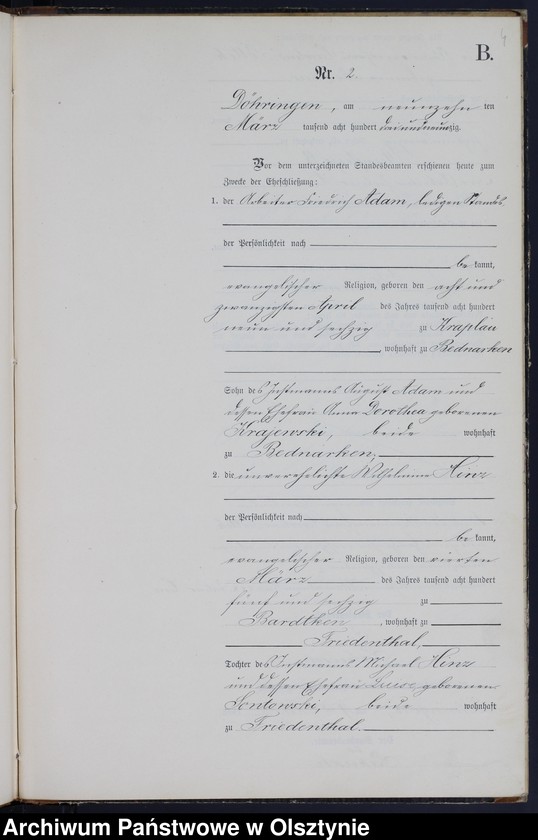 4
B.
Nr. 2.
Döhringen, am neunzehn ten
März tausend acht hundert dreiundneunzig.
Vor dem unterzeichneten Standesbeamten erschienen heute zum
Zwecke der Eheschließung:
1. der Arbeiter Friedrich Adam, ledigen Standes,
der Persönlichkeit nach
be kannt,
evangelischer Religion, geboren den acht und
zwanzigsten April des Jahres tausend acht hundert
neun und sechzig zu Kraplau
, wohnhaft zu Bednarken
Sohn des Instmanns August Adam und
dessen Ehefrau Anna Dorothea geborenen
Krajewski, beide wohnhaft
zu Bednarken;
2. die unverehelichte Wilhelmine Hinz
der Persönlichkeit nach
be kannt,
evangelischer Religion, geboren den vierten
März des Jahres tausend acht hundert
fünf und sechzig zu
Bardtken, wohnhaft zu
Friedenthal,
Tochter des Instmanns Michael Hinz
und dessen Ehefrau geborenen
Sontowski, beide wohnhaft
zu Friedenthal.
Archiwum Państwowe w Olsztynie